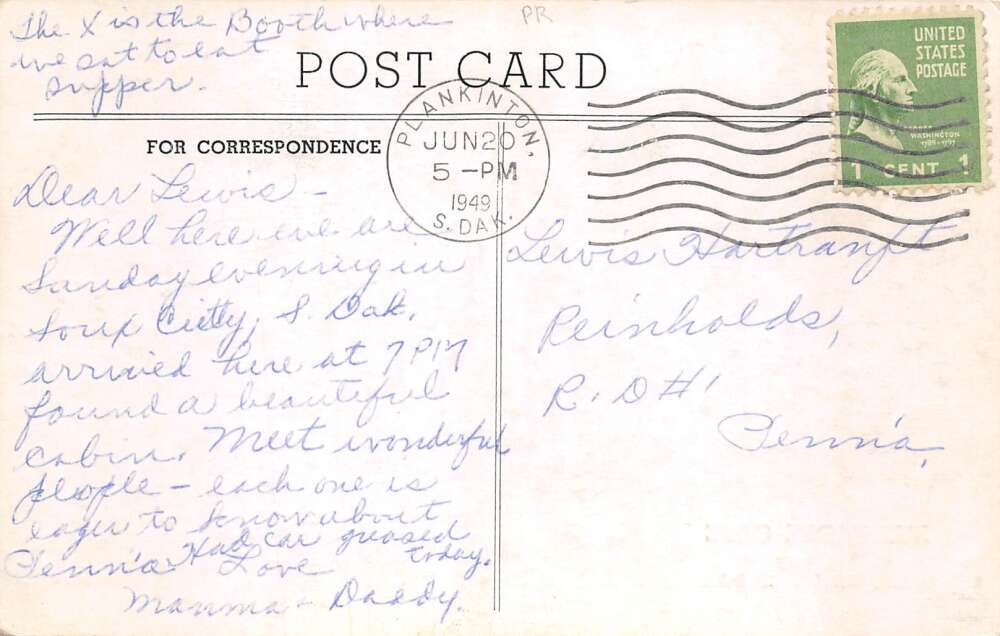 The X is the Booth where
we sat to eat
supper.
PR
POST CARD
FOR CORRESPONDENCE
PLANKINTON,
JUN 20
5 -PM
1949
S. DAK.
UNITED
STATES
POSTAGE
WASHINGTON
1789-1797
1 CENT 1
Dear Lewis -
Well here we are
Sunday evening in
Soux Citty, S. Dak.
arrived here at 7 PM
found a beautiful
cabin. Meet wonderful
people - each one is
eager to know about
Penn'a. Had car greased
today.
Love
Mamma - Daddy.
Lewis Hartranft
Reinholds,
R. D #1
Penn'a,